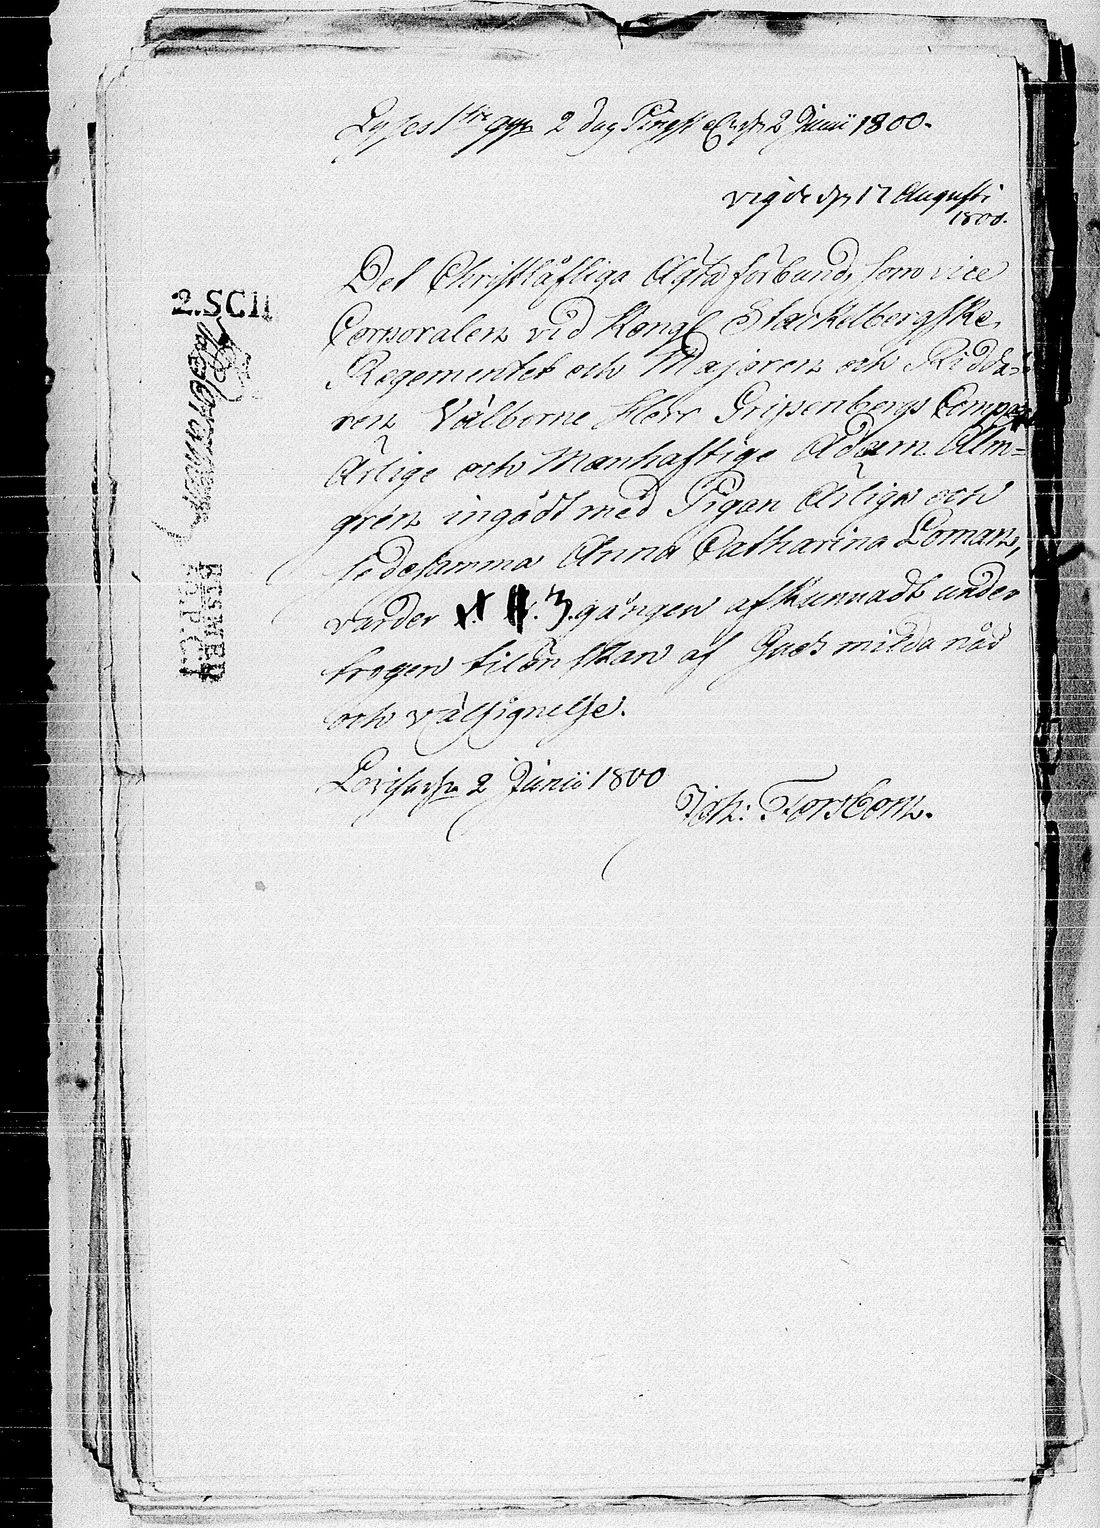 Lyses 1ste ggn 2 dag Pingst d. 2 Junii 1800.
vigde d. 17 Augusti
1800.
Det Christlöfliga Ägtaförbund, som vice
Corporalen vid Kongl Stackelbergske
Regementet och Majoren och Ridda=
ren Välborne Herr Gripenbergs Compagni
Ärlige och Manhaftige Adam Alm=
grén ingådt med Pigan Ärliga och
sedesamma Anna Catharina Loman,
varder 3. gången afkunnadt under
trogen tilönskan af Guds milda nåd
och välsignelse.
Lovisa d. 2 Junii 1800
Joh: Forsbom.
2.SCII